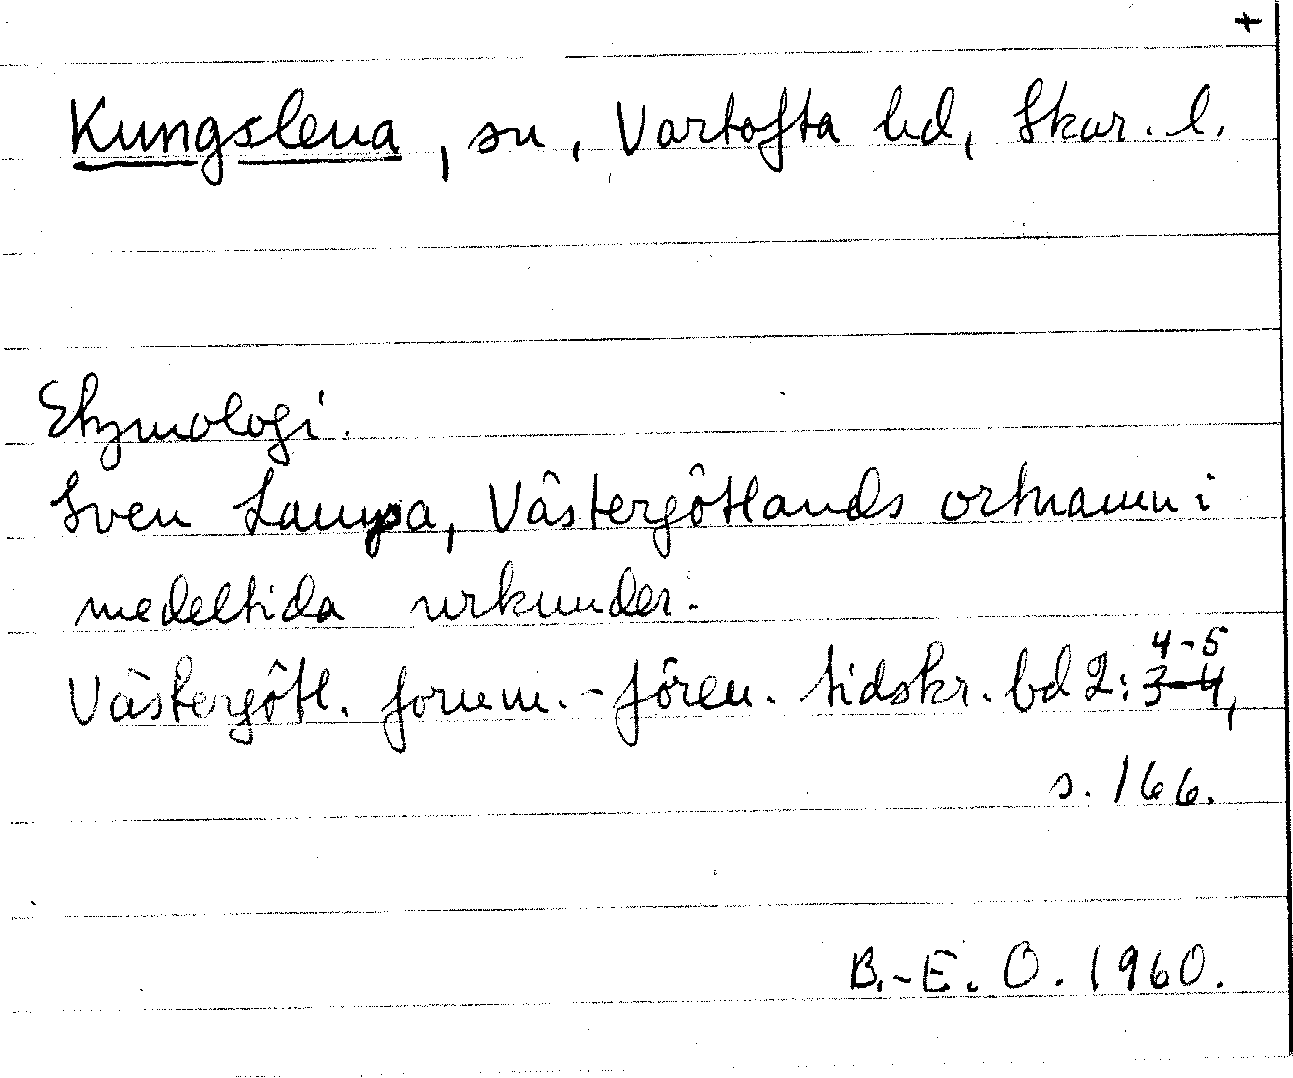 +
Kungslena, sn, Vartofta hd, Skar. l.
Etymologi.
Sven Lampa, Västergötlands ortnamn i
medeltida urkunder.
Västergötl. fornm.-fören. tidskr. bd 2: 3-4 4-5,
s. 166.
B.-E. O. 1960.